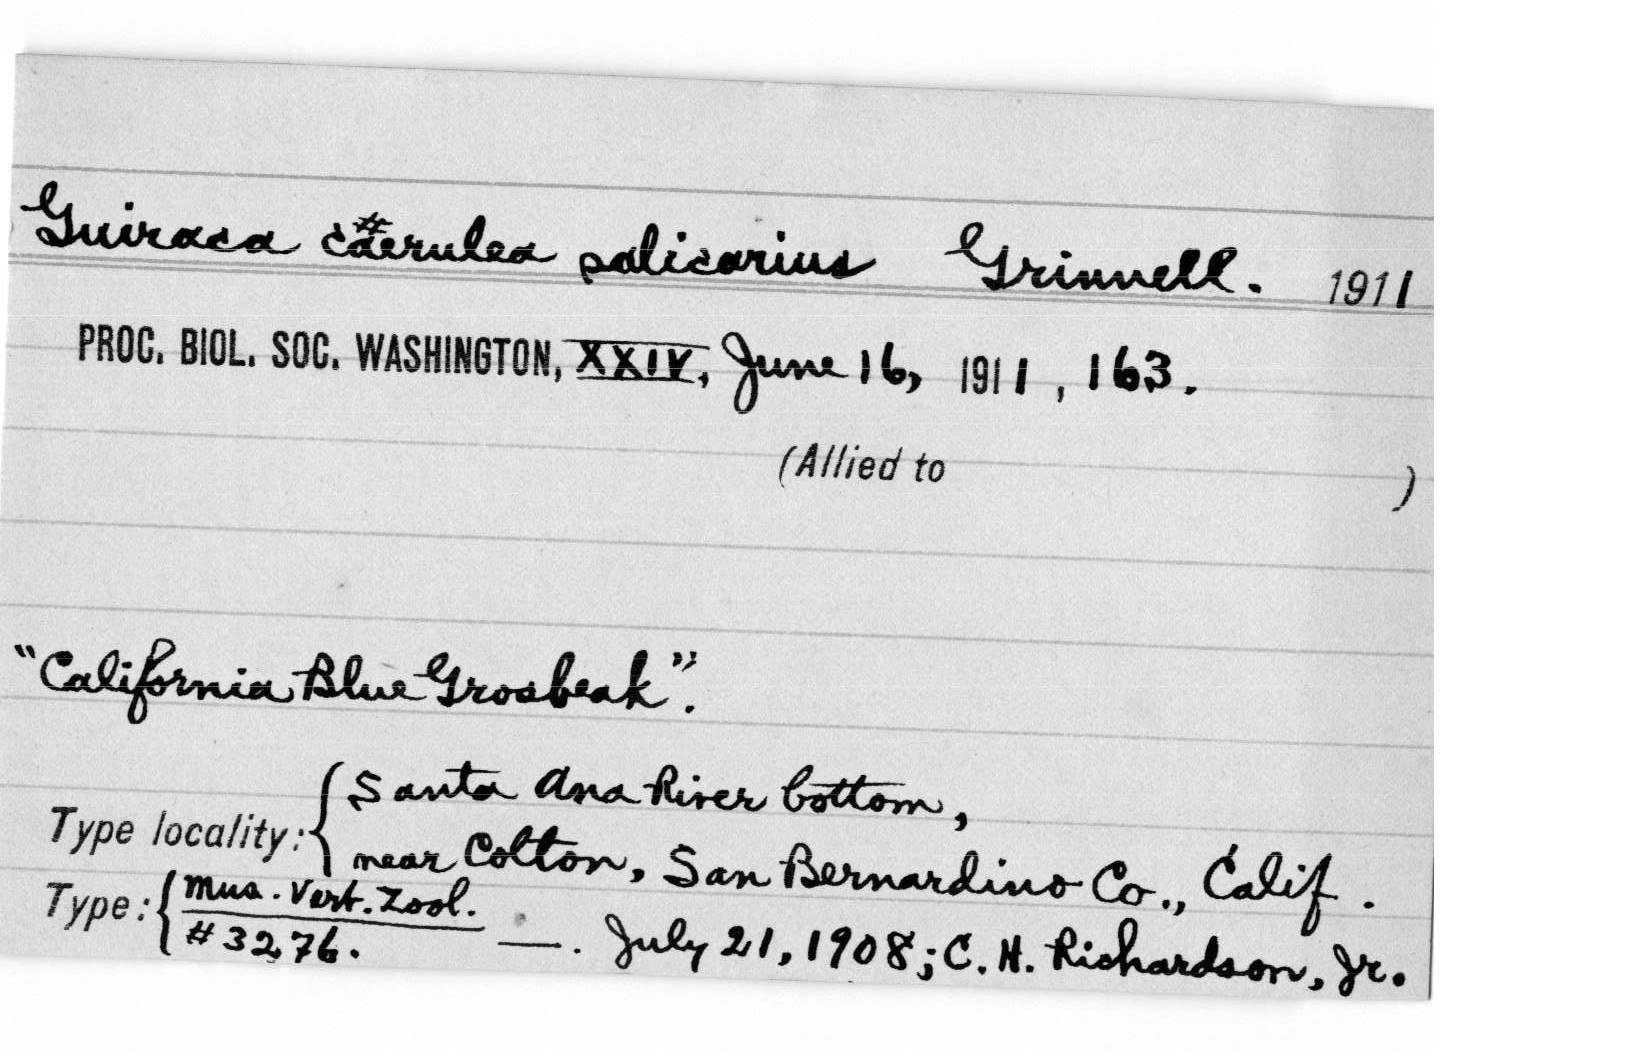 Guiraca caerulea salicarius Grinnell. 1911
#
PROC. BIOL. SOC. WASHINGTON, XXIV, June 16, 1911, 163.
(Allied to )
"California Blue Grosbeak".
Type locality: { Santa Ana River bottom,
near Colton, San Bernardino Co., Calif.
Type: { Mus. Vert. Zool.
#3276. —. July 21, 1908; C. H. Richardson, Jr.